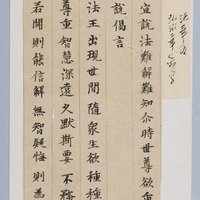 宜說法難解難知尒時世尊欲重
說偈言
法王出現世間隨衆生欲種種
尊重智慧深遠久默斯要不務
若聞則能信解無智疑悔則為